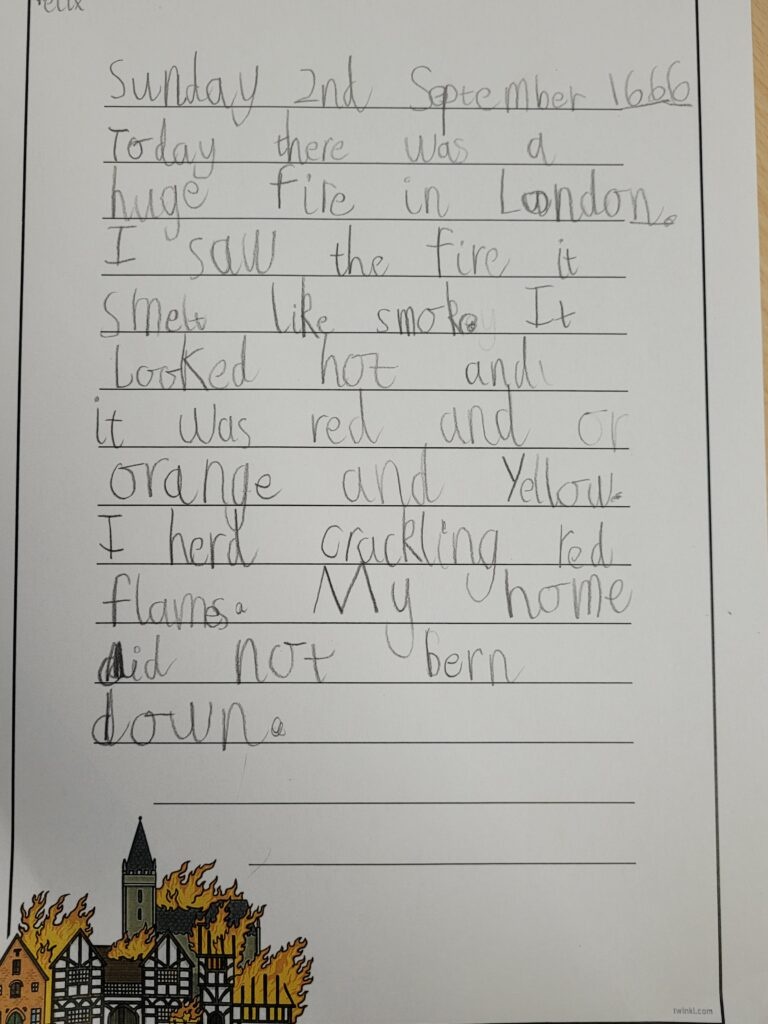 Felix
Sunday 2nd September 1666
Today there was a
huge fire in London.
I saw the fire it
smelt like smoke It
Looked hot and
it was red and or
orange and Yellow.
I herd crackling red
flames. My home
did not bern
down.
twinkl.com